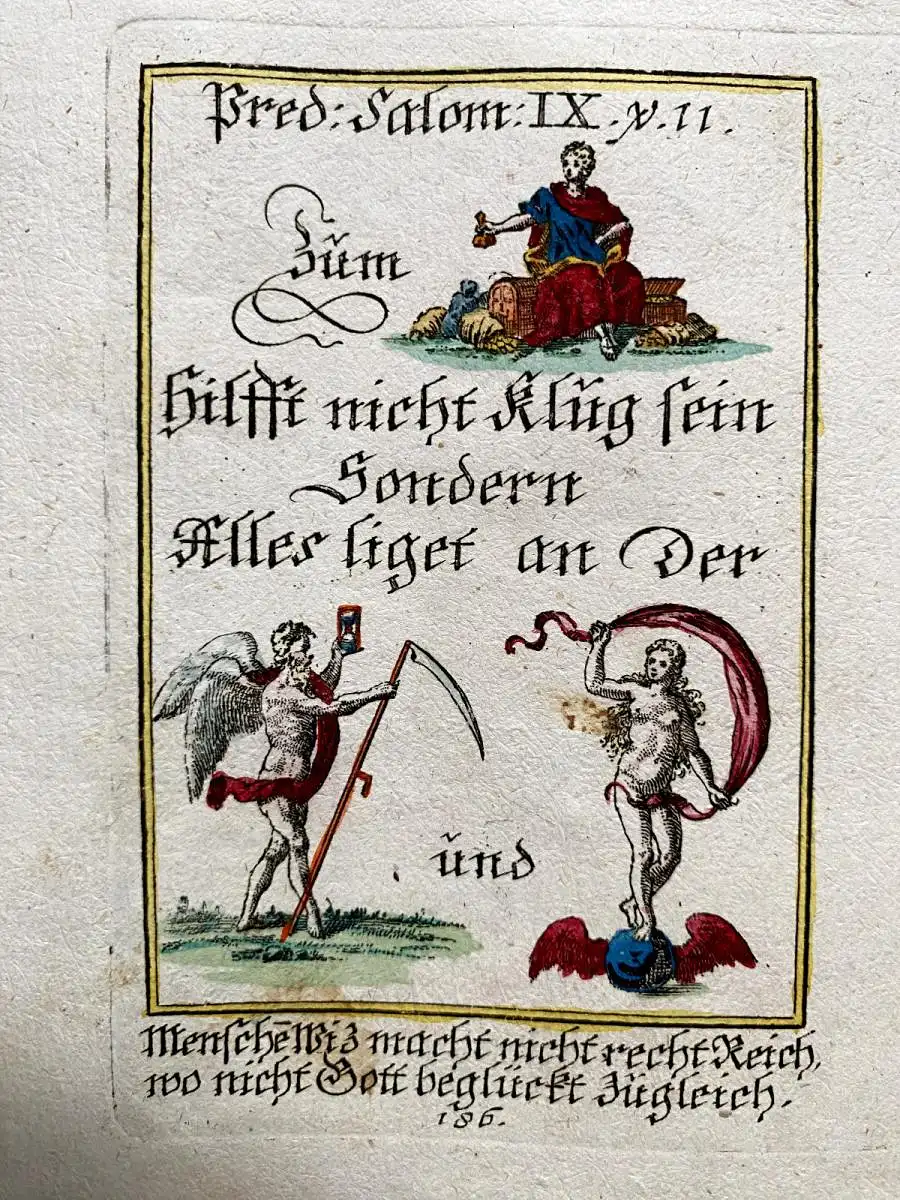 Pred: Salom: IX. v. 11.
Zŭm
hilfft nicht Klŭg sein
Sondern
Alles liget an Der
. ŭnd
Menschē Wiz macht nicht recht Reich,
wo nicht Gott beglückt Zŭgleich.
186.